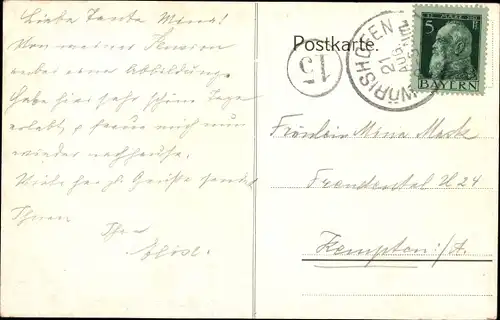 Liebe Tante Mina!
Von meiner Pension
neben eine Abbildung.
Habe hier sehr schöne Tage
erlebt, & freue mich nun
wieder nachhause.
Viele herzl. Grüße sendet
Ihnen
Ihre
Postkarte.
15
WÖRISHOFEN
21
AUG
5
BAYERN
Fräulein Mina Mack
Freudental H 24
Kempten i/A.